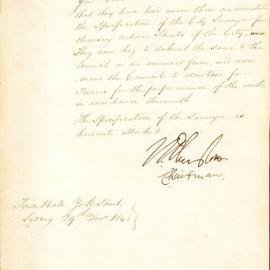 that they have had under their consideration
the Specification of the City Surveyor for
cleansing certain Streets of the City, and
They now beg to submit the same to the
Council in an amended form, and recom
mend the Council to advertise for
Tenders for the performance of the work
in accordance therewith
The Specification of the Surveyor is
hereunto attached
Chairman
Town Hall York Street
Sydney 29 Novr 1845